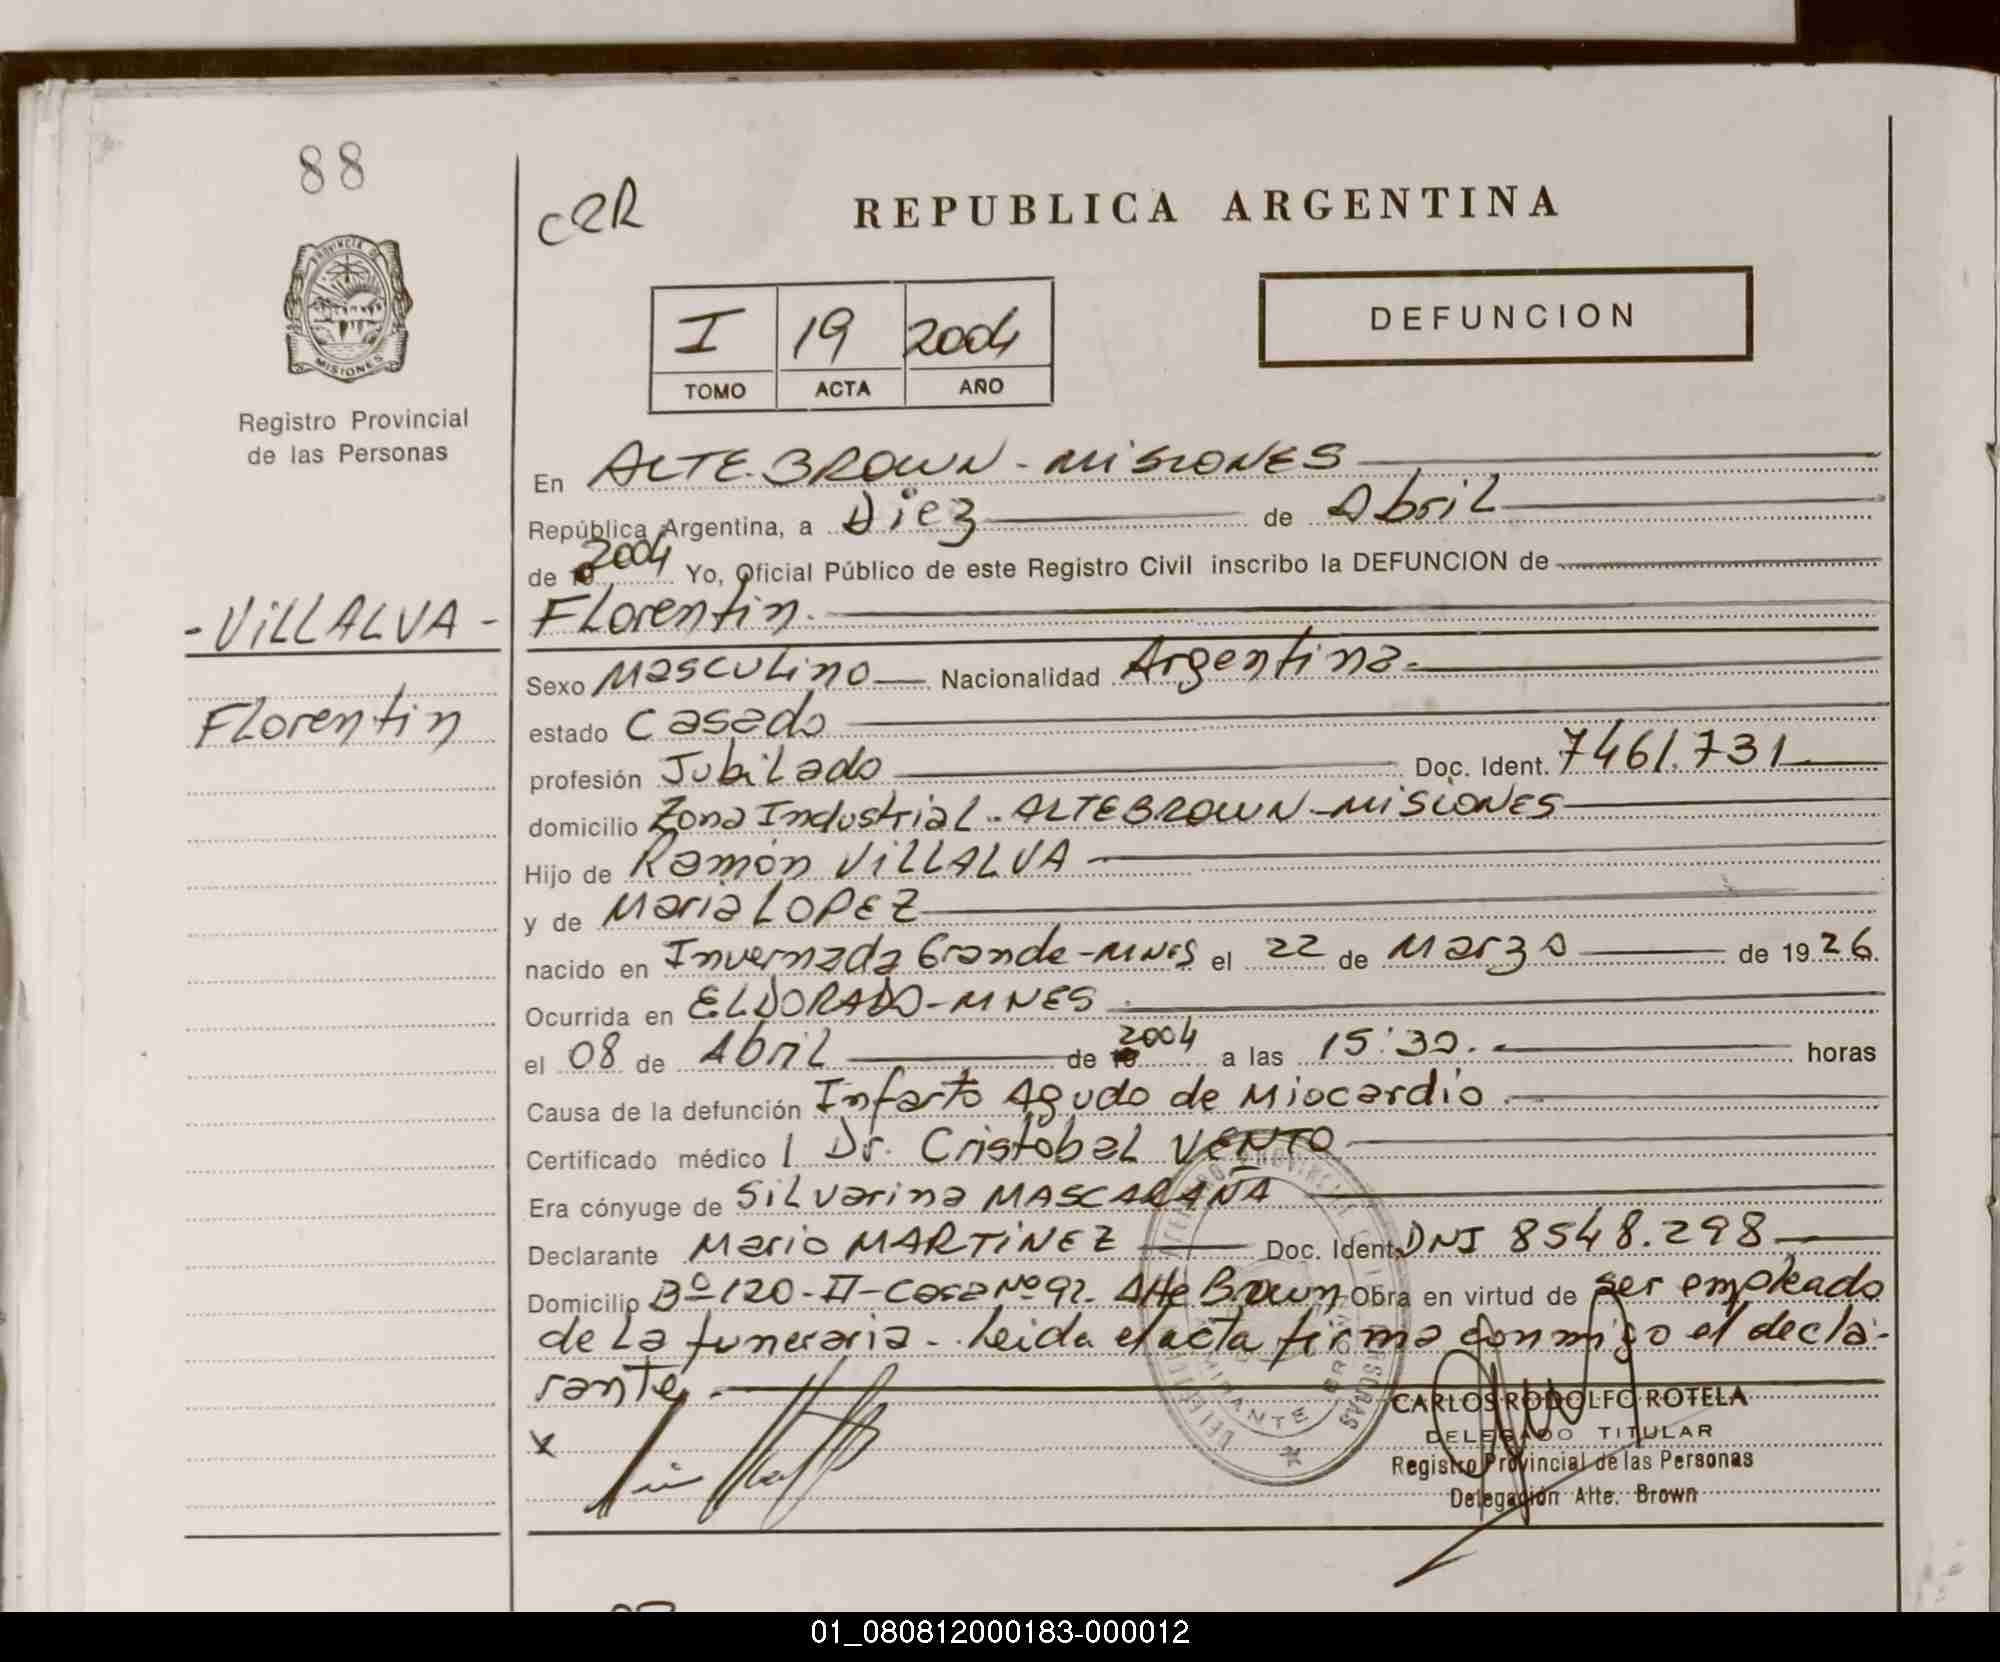 88
PROVINCIA D
MISIONES
Registro Provincial
de las Personas
- VILLALVA -
Florentin
C2R
REPUBLICA ARGENTINA
I 19 2004
TOMO ACTA AÑO
DEFUNCION
En ALTE. BROWN - MISIONES
República Argentina, a Diez de Abril
de 2004 Yo, Oficial Público de este Registro Civil inscribo la DEFUNCION de
Florentin.
Sexo Masculino Nacionalidad Argentina.
estado Casado
profesión Jubilado Doc. Ident. 7461.731
domicilio Zona Industrial - ALTE BROWN - MISIONES
Hijo de Ramón VILLALVA
y de Maria LOPEZ
nacido en Invernada Grande - MNES el 22 de Marzo de 1926.
Ocurrida en ELDORADO - MNES
el 08 de Abril de 2004 a las 15:30. horas
Causa de la defunción Infarto Agudo de Miocardio.
Certificado médico Dr. Cristobal VENTO
Era cónyuge de Silvarina MASCARAÑA
Declarante Mario MARTINEZ Doc. Ident. DNI 8548.298
Domicilio Bº 120 - II - Casa Nº 92. Alte Brown Obra en virtud de ser empleado
de la funeraria - Leida el acta firma conmigo el decla-
rante.
x
CARLOS RODOLFO ROTELA
DELEGADO TITULAR
Registro Provincial de las Personas
Delegación Alte. Brown
01_080812000183-000012